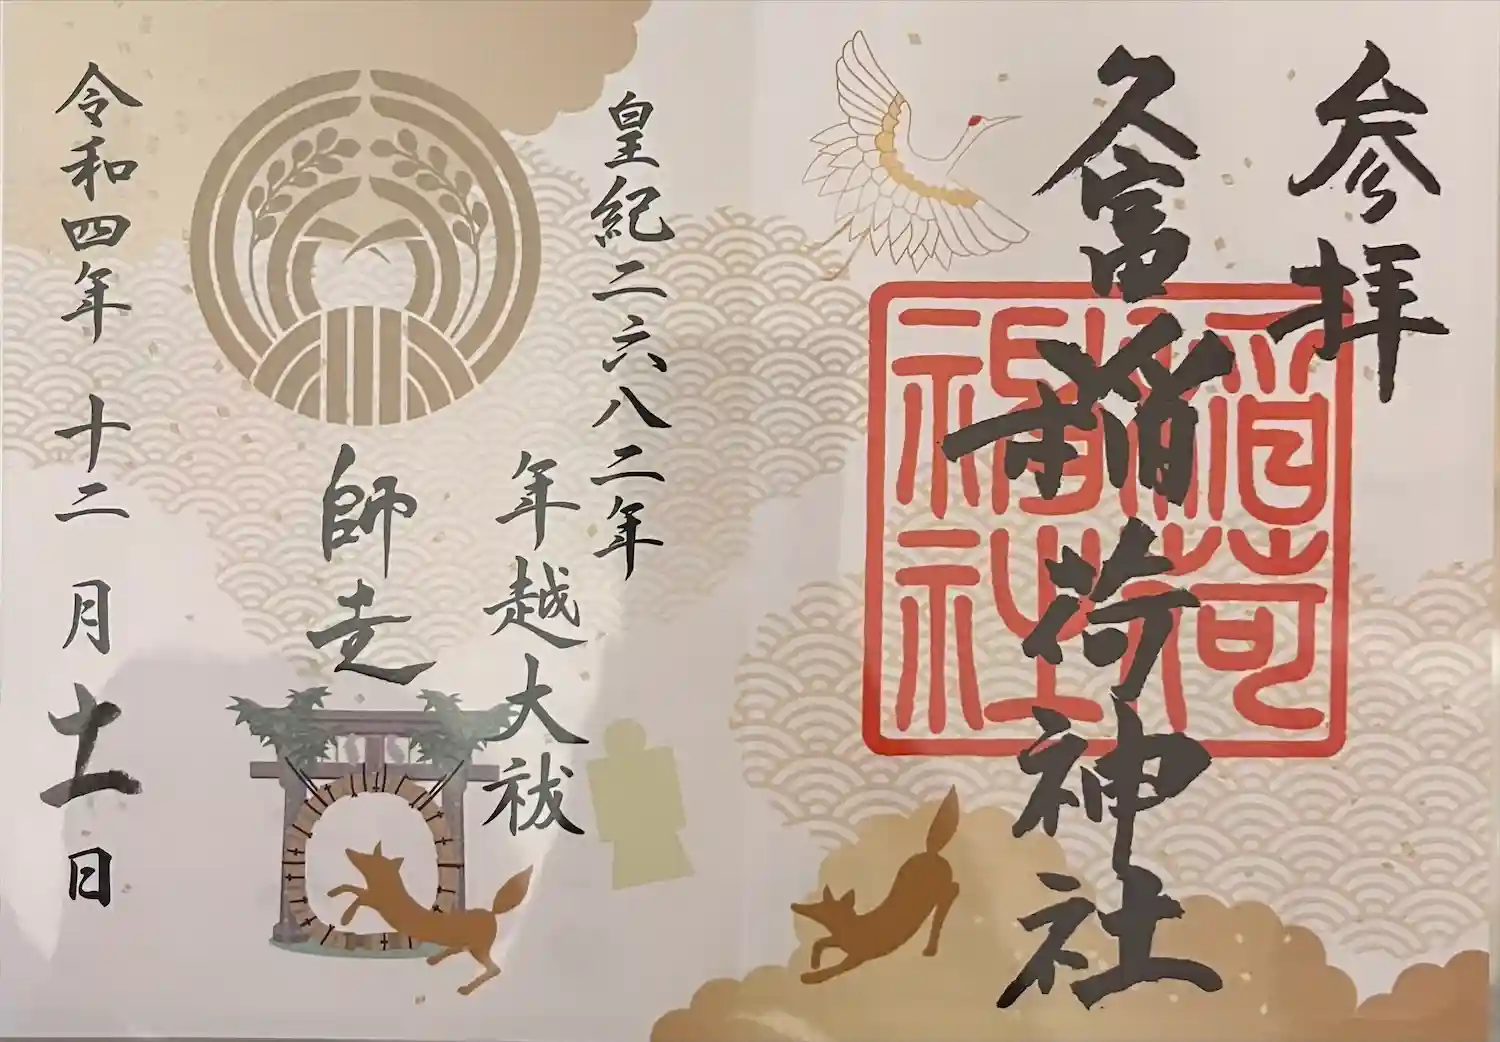 参拝
久富稲荷神社
稲荷
神社
皇紀二六八二年
年越大祓
師走
令和四年 十二月十一日